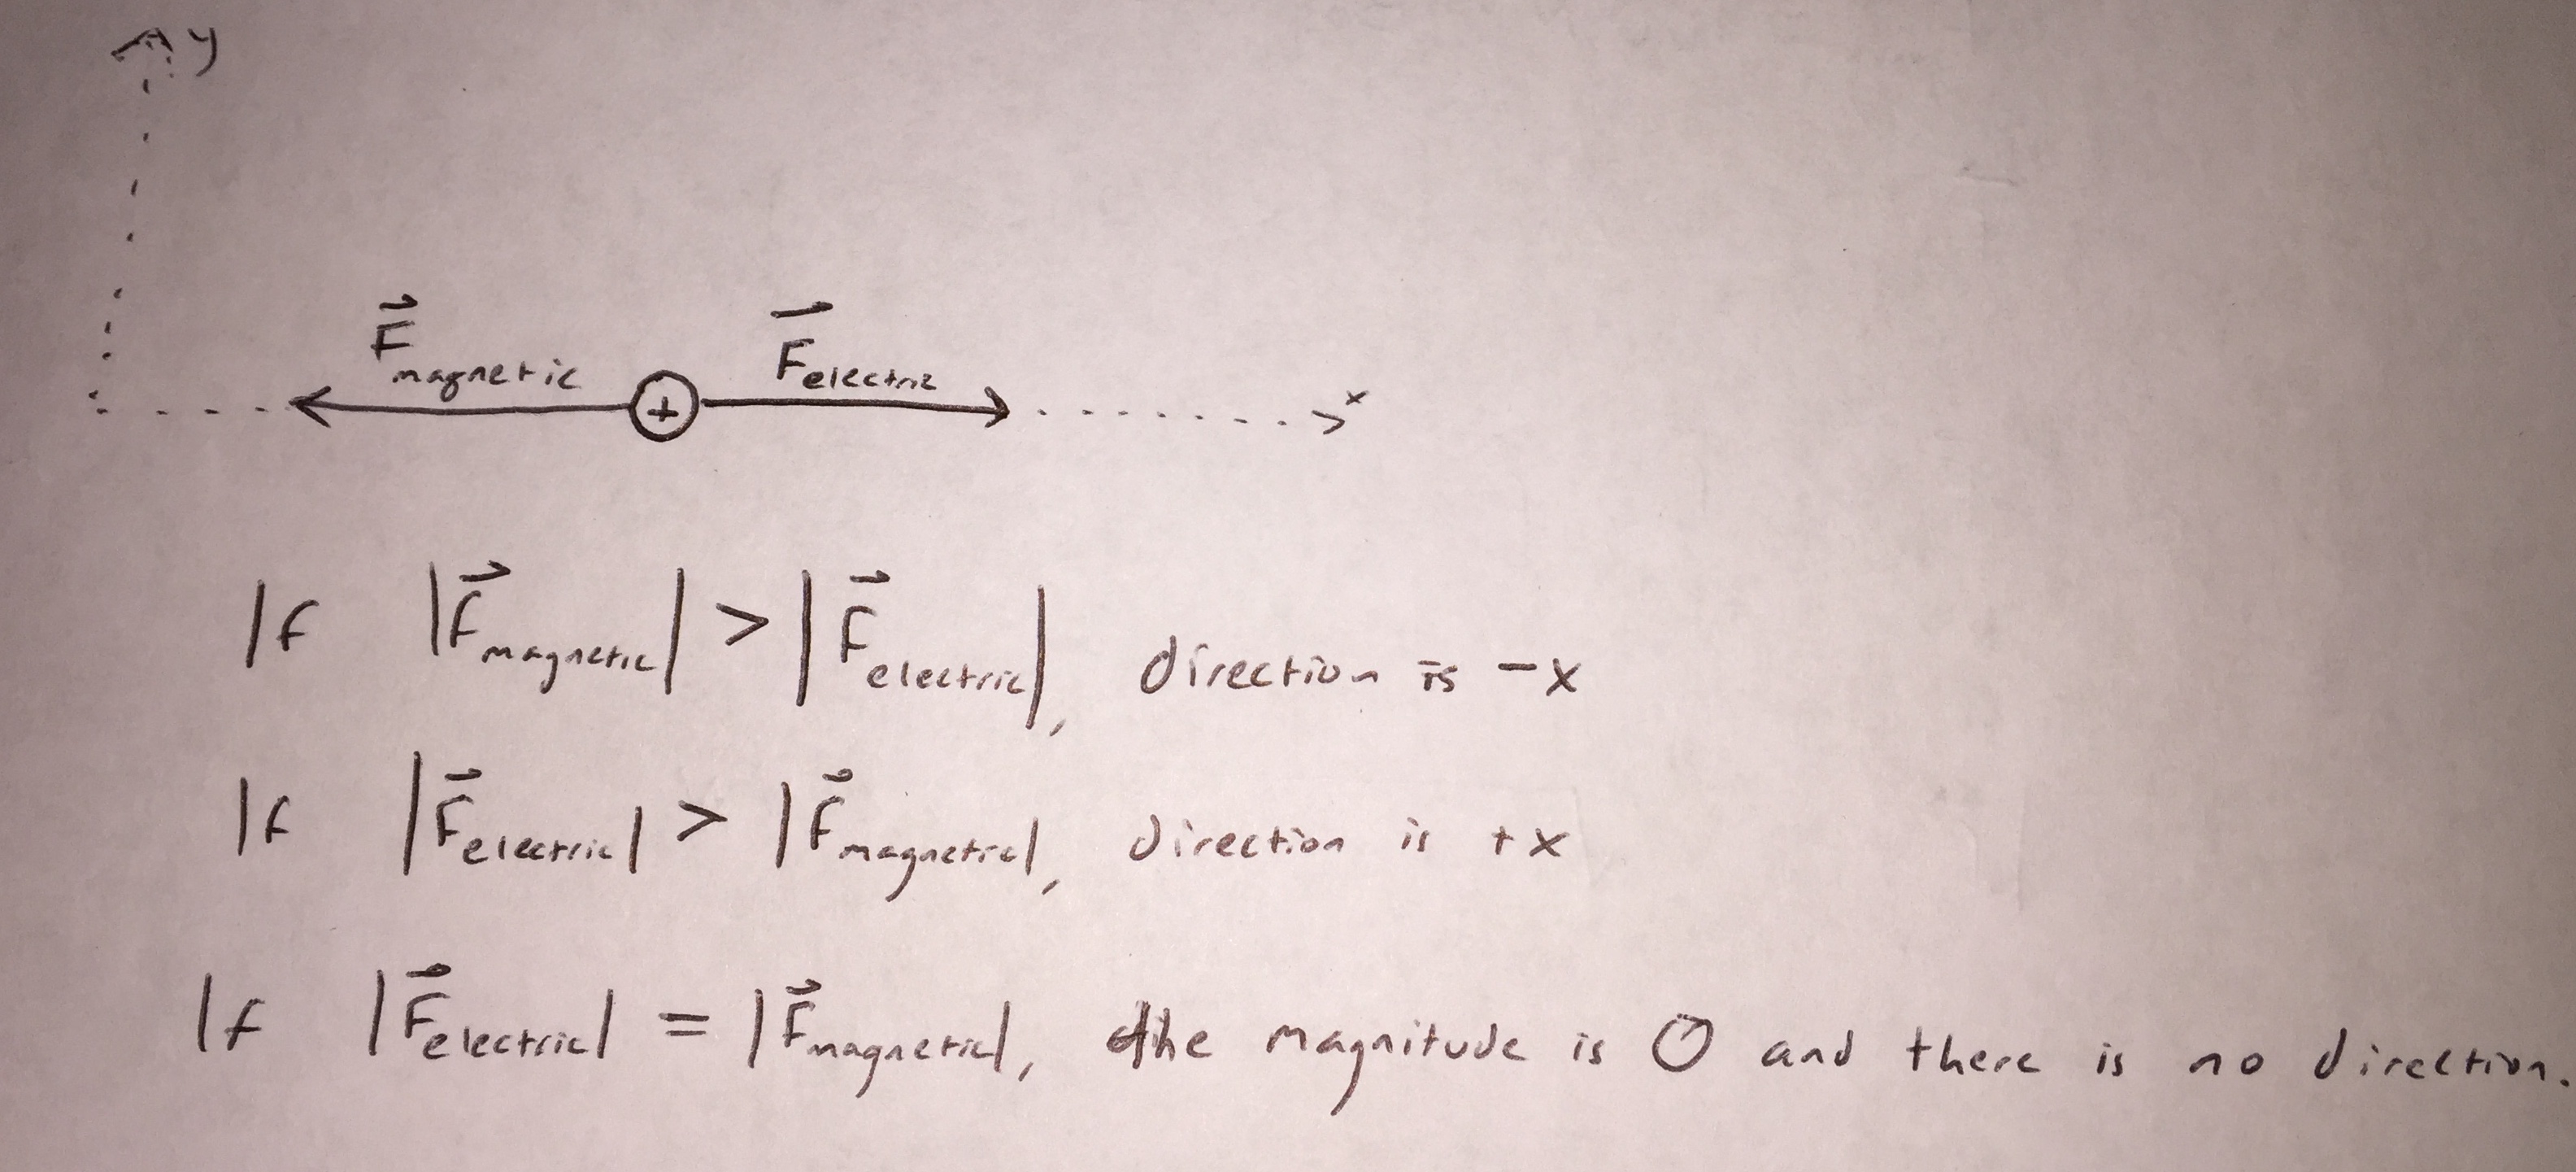 y
F⃗magnetic F⃗electric
+
x
If |F⃗magnetic| > |F⃗electric|, direction is -x
If |F⃗electric| > |F⃗magnetic|, direction is +x
If |F⃗electric| = |F⃗magnetic|, the magnitude is 0 and there is no direction.